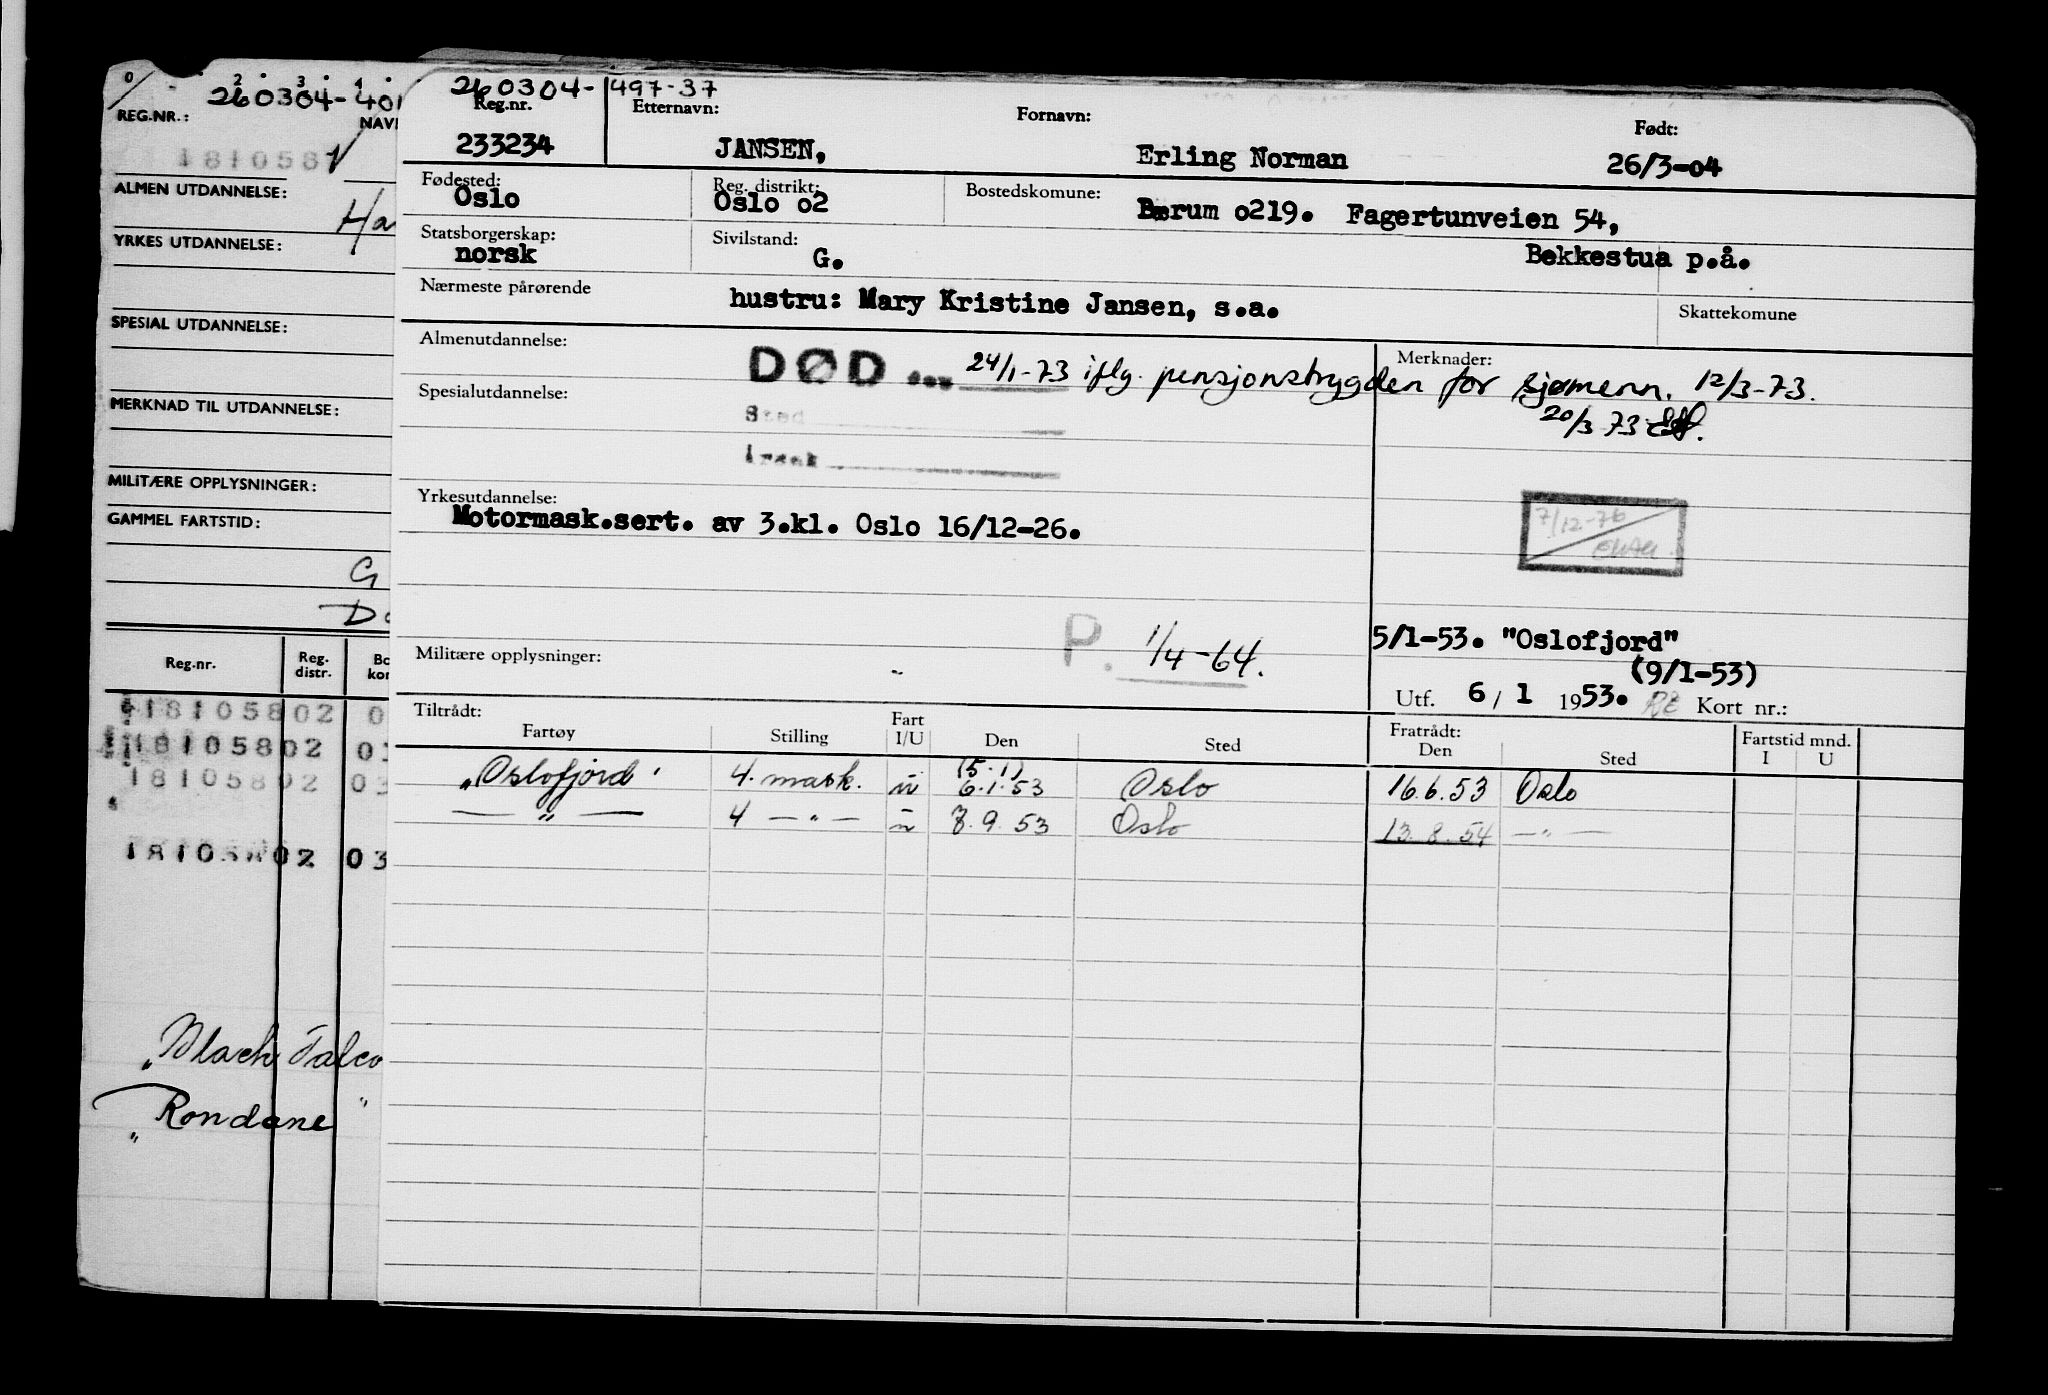 260304-401
REG.NR.:
NAV
181058
ALMEN UTDANNELSE:
Ha
YRKES UTDANNELSE:
SPESIAL UTDANNELSE:
MERKNAD TIL UTDANNELSE:
MILITÆRE OPPLYSNINGER:
GAMMEL FARTSTID:
G
D
Reg.nr. Reg. distr. Bo kom
18105802 0
18105802 03
18105802 03
18105802 03
"Black Falco
"Rondane "
260304-497-37
Reg.nr. Etternavn: Fornavn: Født:
233234 JANSEN, Erling Norman 26/3-04
Fødested: Reg. distrikt: Bostedskomune:
Oslo Oslo o2 Bærum o219. Fagertunveien 54,
Statsborgerskap: Sivilstand:
norsk G. Bekkestua p.å.
Nærmeste pårørende hustru: Mary Kristine Jansen, s.a. Skattekomune
Almenutdannelse: Merknader:
DØD ... 24/1-73 iflg. pensjonstrygden for sjømenn. 12/3-73.
Spesialutdannelse:
Sted 20/3 73
Årsak
Yrkesutdannelse:
Motormask.sert. av 3.kl. Oslo 16/12-26.
7/12-76
P. 1/4-64.
5/1-53. "Oslofjord"
Militære opplysninger: - (9/1-53)
Utf. 6 / 1 1953. Kort nr.:
Tiltrådt: Fratrådt: Fartstid mnd.
Fartøy Stilling Fart I/U Den Sted Den Sted I U
(5.1)
"Oslofjord" 4. mask. u 6.1.53 Oslo 16.6.53 Oslo
— " — 4 — " — u 8.9.53 Oslo 13.8.54 — " —